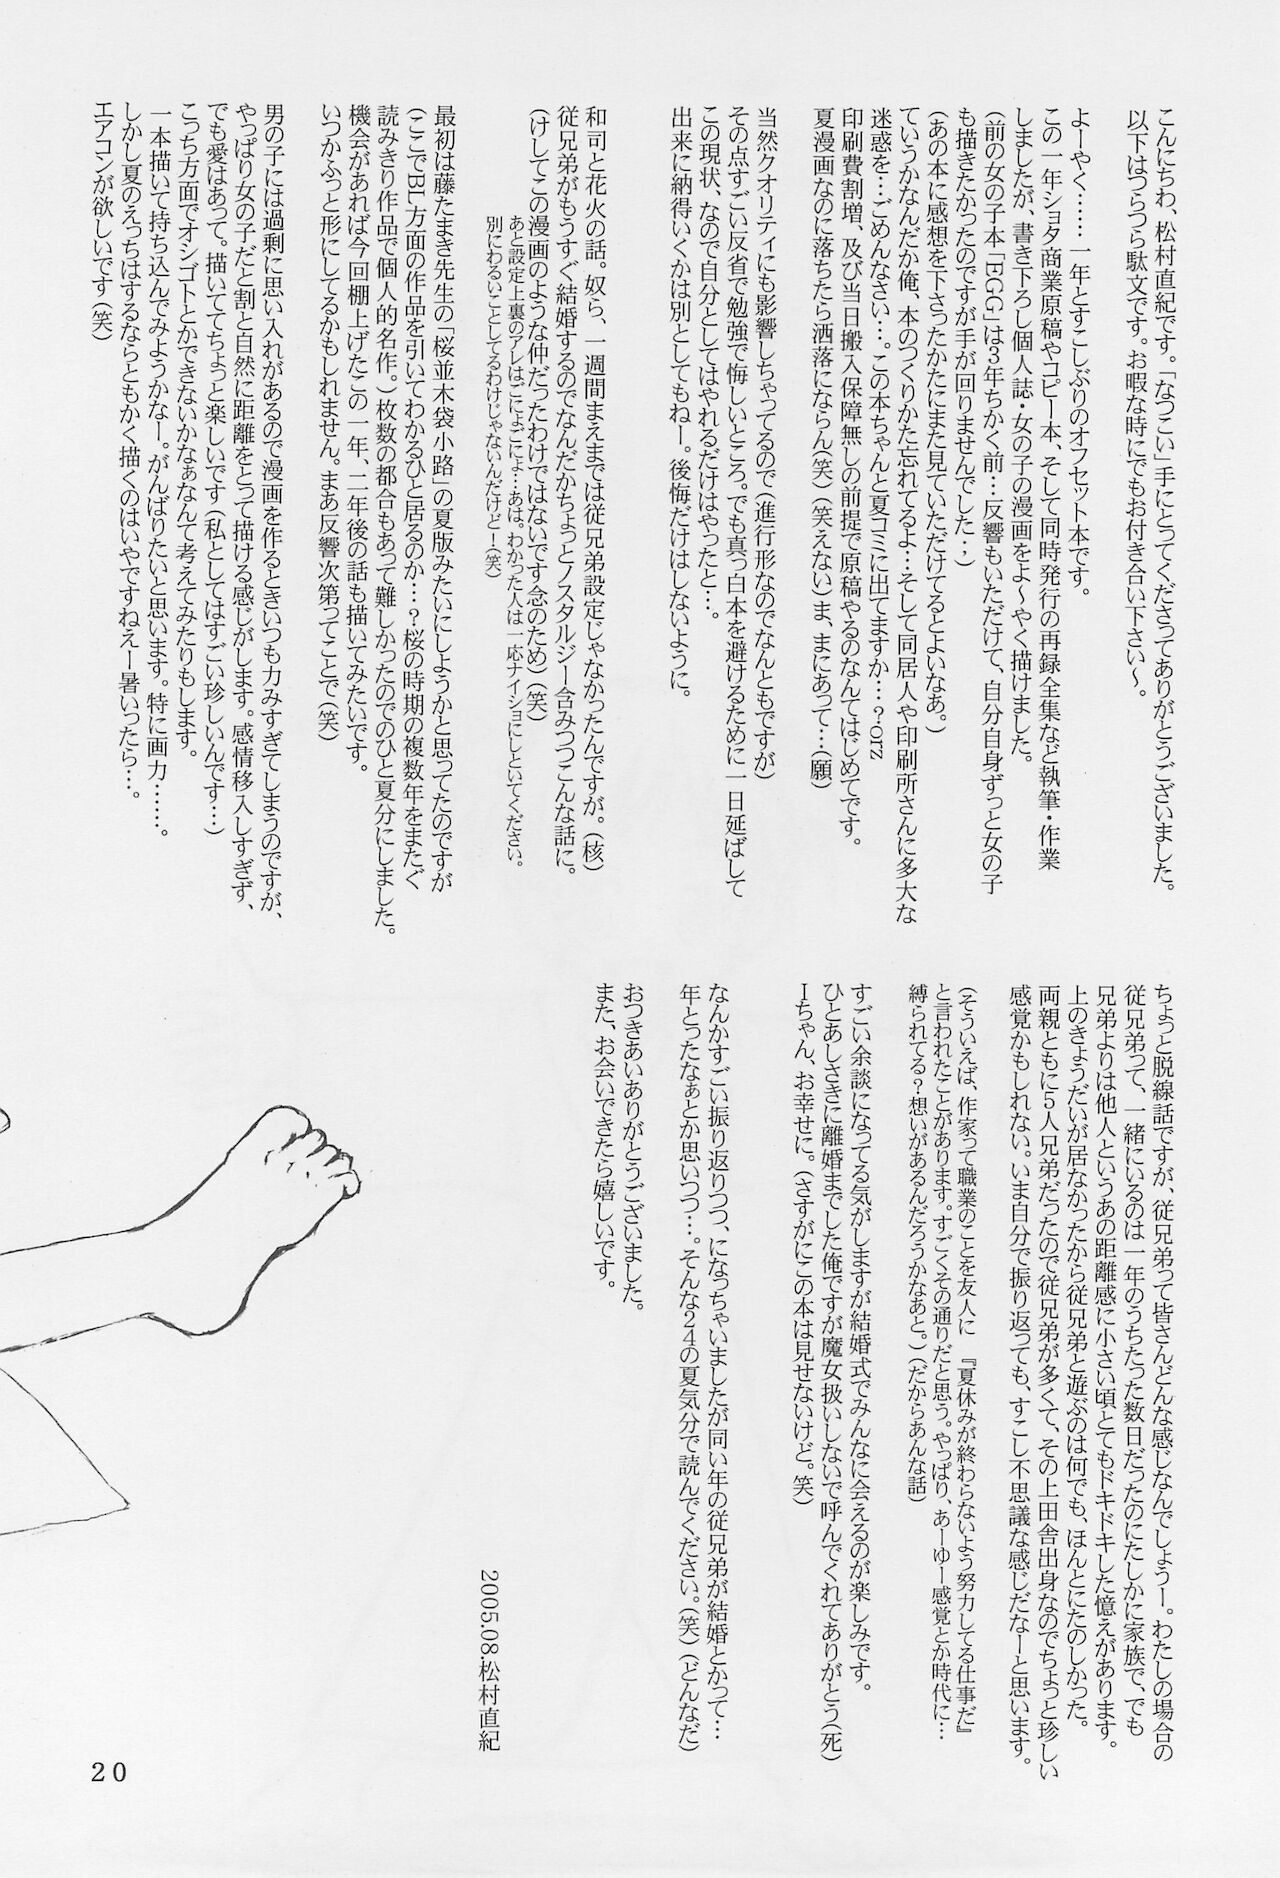 こんにちわ、松村直紀です。「なつこい」手にとってくださってありがとうございました。
以下はつらつら駄文です。お暇な時にでもお付き合い下さい～。
よーやく……一年とすこしぶりのオフセット本です。
この一年ショタ商業原稿やコピー本、そして同時発行の再録全集など執筆・作業
しましたが、書き下ろし個人誌・女の子の漫画をよ～やく描けました。
（前の女の子本「EGG」は３年ちかく前…反響もいただけて、自分自身ずっと女の子
も描きたかったのですが手が回りませんでした…）
（あの本に感想を下さったかたにまた見ていただけてるとよいなあ。）
ていうかなんだか俺、本のつくりかた忘れてるよ…そして同居人や印刷所さんに多大な
迷惑を…ごめんなさい…。この本ちゃんと夏コミに出てますか…？orz
印刷費割増、及び当日搬入保障無しの前提で原稿やるのなんてはじめてです。
夏漫画なのに落ちたら洒落にならん（笑）（笑えない）ま、まにあって……（願）
当然クオリティにも影響しちゃってるので（進行形なのでなんともですが）
その点すごい反省で勉強で悔しいところ。でも真っ白本を避けるために一日延ばして
この現状、なので自分としてはやれるだけはやったと…。
出来に納得いくかは別としてもねー。後悔だけはしないように。
和司と花火の話。奴ら、一週間まえまでは従兄弟設定じゃなかったんですが。（核）
従兄弟がもうすぐ結婚するのでなんだかちょっとノスタルジー含みつつこんな話に。
（けしてこの漫画のような仲だったわけではないです念のため）（笑）
あと設定上裏のアレはごにょごにょ…あは。わかった人は一応ナイショにしといてください。
別にわるいことしてるわけじゃないんだけど！（笑）
最初は藤たまき先生の「桜並木袋小路」の夏版みたいにしようかと思ってたのですが
（ここでBL方面の作品を引いてわかるひと居るのか…？桜の時期の複数年をまたぐ
読みきり作品で個人的名作。）枚数の都合もあって難しかったのでのひと夏分にしました。
機会があれば今回棚上げたこの一年、二年後の話も描いてみたいです。
いつかふっと形にしてるかもしれません。まあ反響次第ってことで（笑）
男の子には過剰に思い入れがあるので漫画を作るときいつも力みすぎてしまうのですが、
やっぱり女の子だと割と自然に距離をとって描ける感じがします。感情移入しすぎず、
でも愛はあって。描いててちょっと楽しいです（私としてはすごい珍しいんです…）
こっち方面でオシゴトとかできないかなぁなんて考えてみたりもします。
一本描いて持ち込んでみようかなー。がんばりたいと思います。特に画力……。
しかし夏のえっちはするならともかく描くのはいやですねえー暑いったら…。
エアコンが欲しいです（笑）
ちょっと脱線話ですが、従兄弟って皆さんどんな感じなんでしょうー。わたしの場合の
従兄弟って、一緒にいるのは一年のうちたった数日だったのにたしかに家族で、でも
兄弟よりは他人というあの距離感に小さい頃とてもドキドキした憶えがあります。
上のきょうだいが居なかったから従兄弟と遊ぶのは何でも、ほんとにたのしかった。
両親ともに５人兄弟だったので従兄弟が多くて、その上田舎出身なのでちょっと珍しい
感覚かもしれない。いま自分で振り返っても、すこし不思議な感じだなーと思います。
（そういえば、作家って職業のことを友人に　『夏休みが終わらないよう努力してる仕事だ』
と言われたことがあります。すごくその通りだと思う。やっぱり、あーゆー感覚とか時代に…
縛られてる？想いがあるんだろうかなあと。）（だからあんな話）
すごい余談になってる気がしますが結婚式でみんなに会えるのが楽しみです。
ひとあしさきに離婚までした俺ですが魔女扱いしないで呼んでくれてありがとう（死）
ーちゃん、お幸せに。（さすがにこの本は見せないけど。笑）
なんかすごい振り返りつつ、になっちゃいましたが同い年の従兄弟が結婚とかって…
年とったなぁとか思いつつ…。そんな２４の夏気分で読んでください。（笑）（どんなだ）
おつきあいありがとうございました。
また、お会いできたら嬉しいです。
2005.08.松村直紀
20